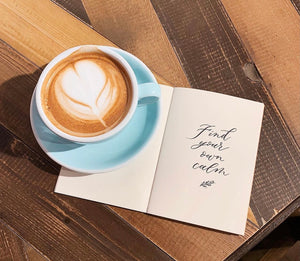 Find
your
own
calm